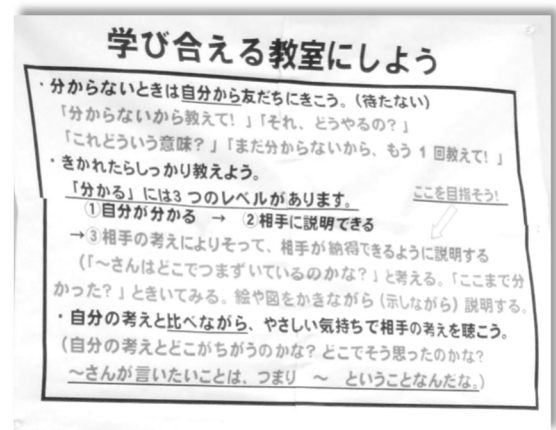 学び合える教室にしよう
・分からないときは自分から友だちにきこう。(待たない)
「分からないから教えて!」「それ、どうやるの?」
「これどういう意味?」「まだ分からないから、もう1回教えて!」
・きかれたらしっかり教えよう。
「分かる」には3つのレベルがあります。 ここを目指そう!
①自分が分かる → ②相手に説明できる
→③相手の考えによりそって、相手が納得できるように説明する
(「~さんはどこでつまずいているのかな?」と考える。「ここまで分
かった?」ときいてみる。絵や図をかきながら(示しながら)説明する。
・自分の考えと比べながら、やさしい気持ちで相手の考えを聴こう。
(自分の考えとどこがちがうのかな?どこでそう思ったのかな?
~さんが言いたいことは、つまり ~ ということなんだな。)